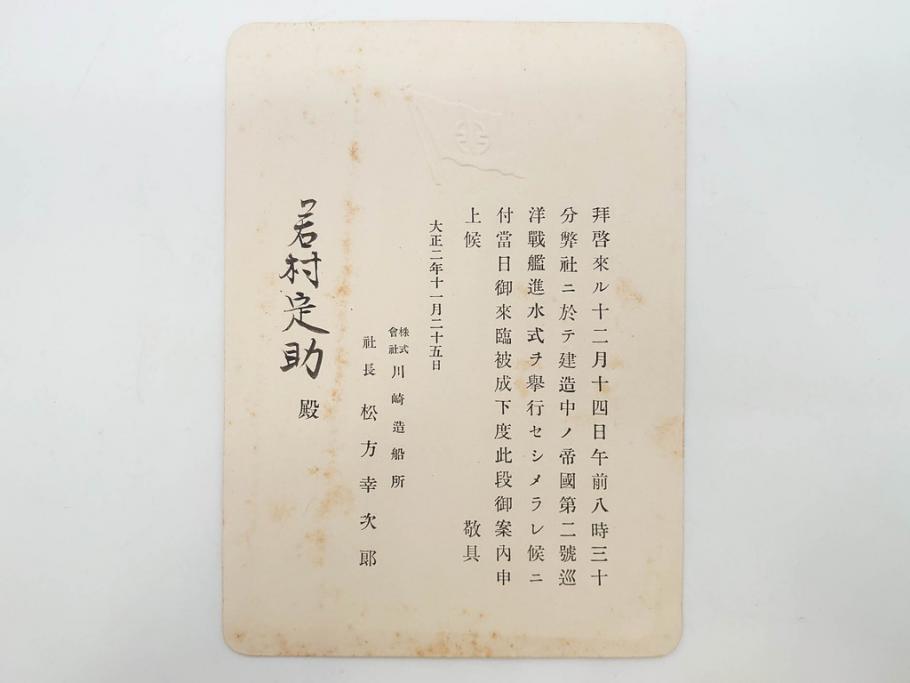 拜啓來ル十二月十四日午前八時三十
分弊社ニ於テ建造中ノ帝國第二號巡
洋戰艦進水式ヲ擧行セシメラレ候ニ
付當日御來臨被成下度此段御案內申
上候 敬具
大正二年十一月二十五日
株式會社川崎造船所
社長 松方幸次郞
若村定助 殿